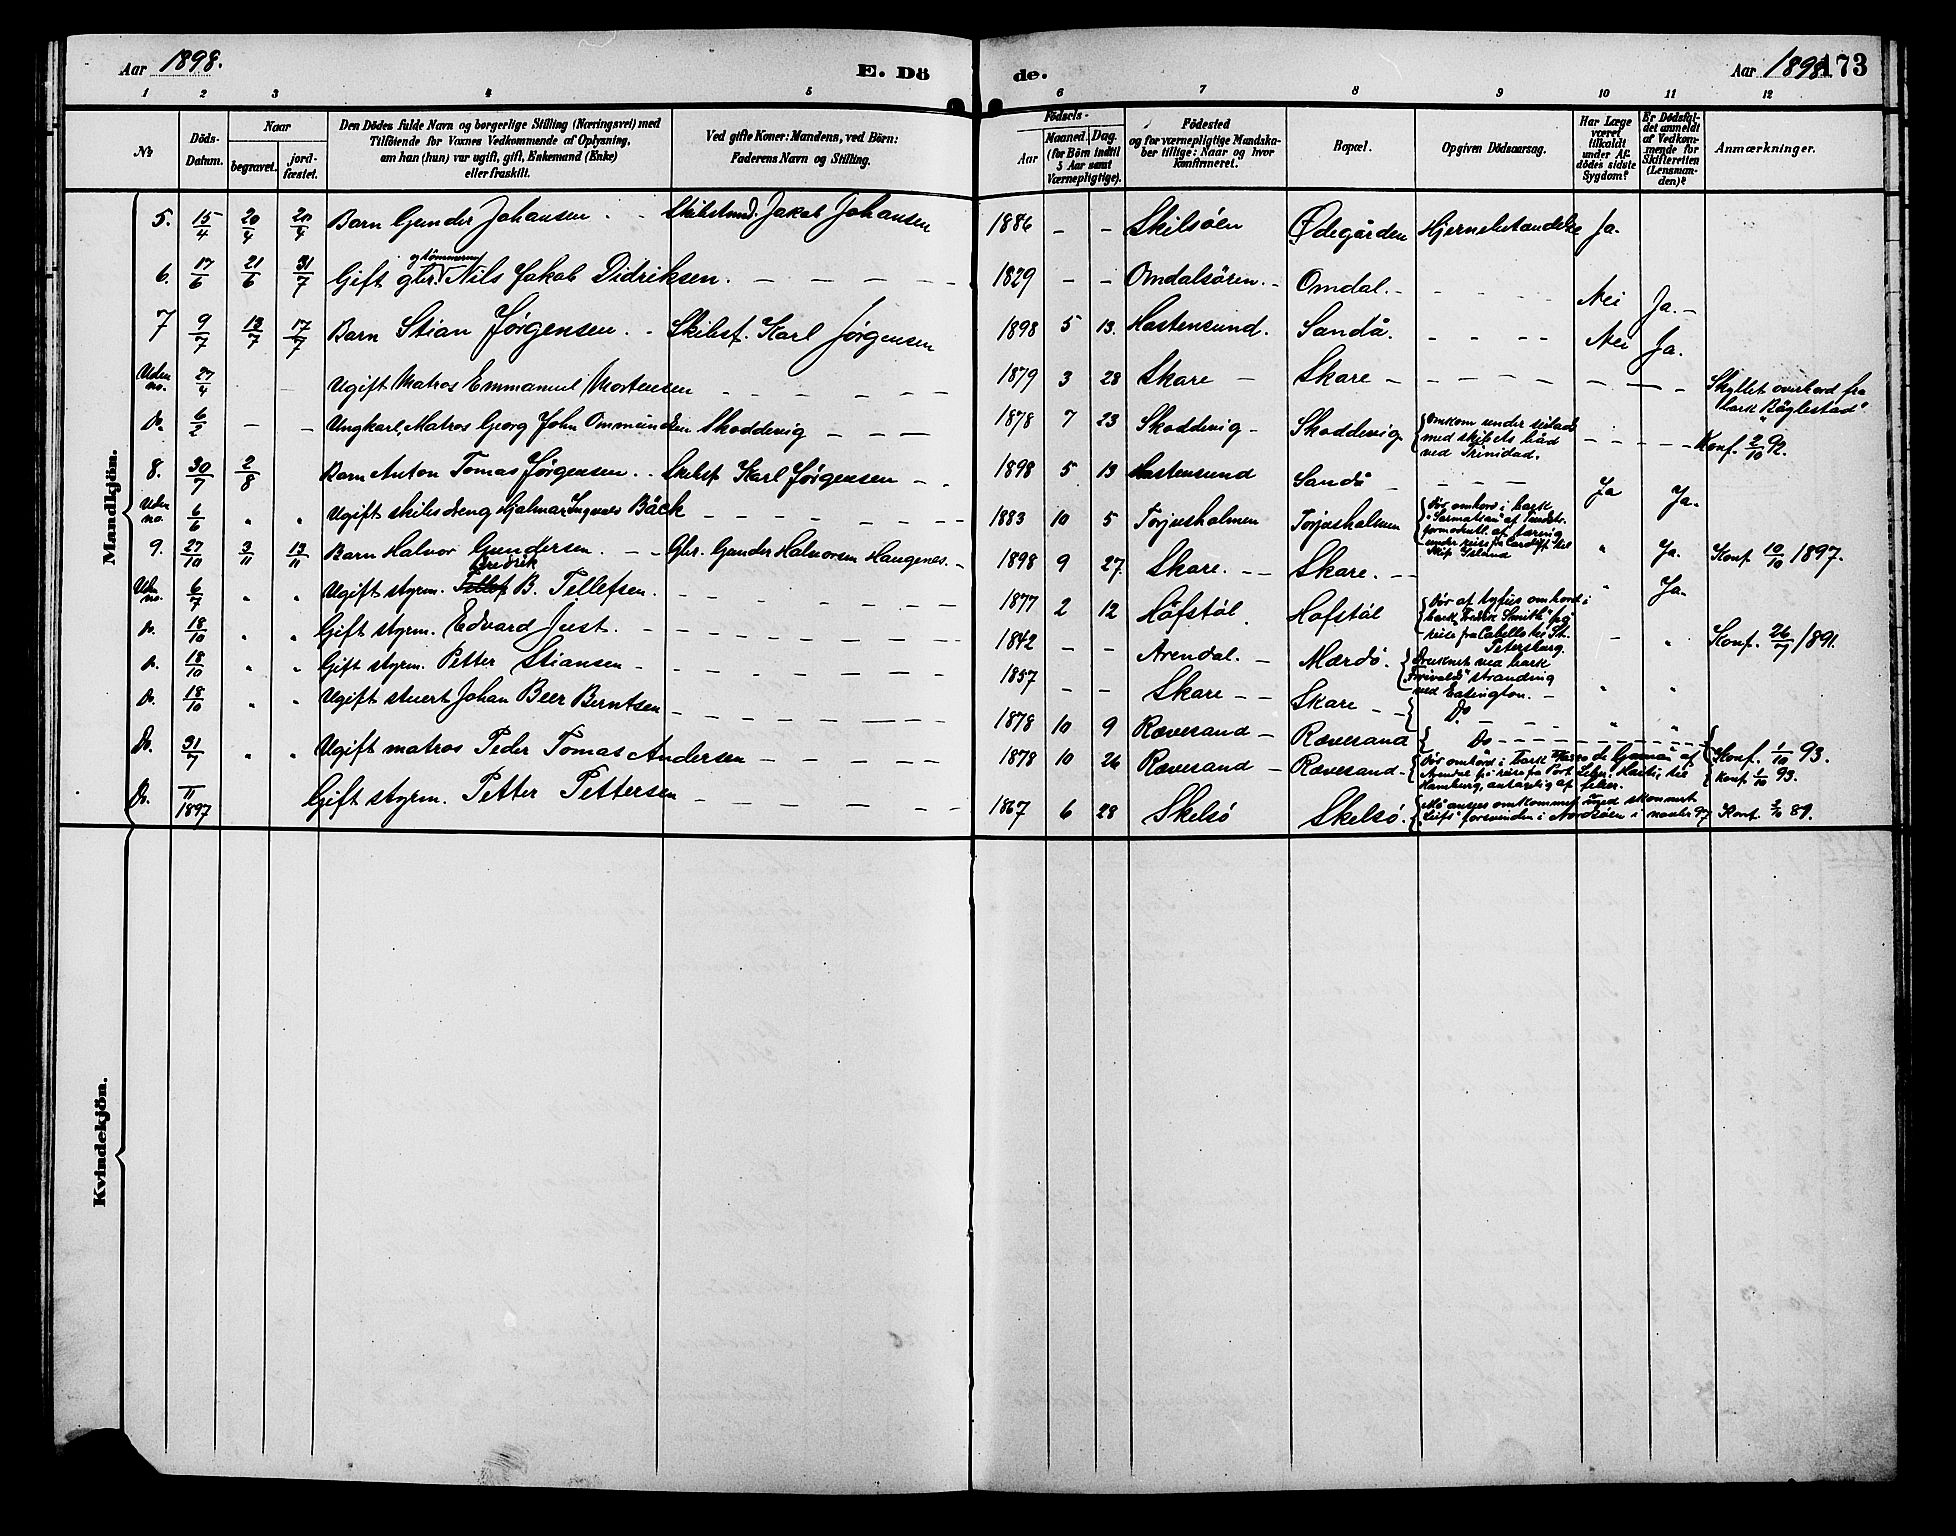 Aar 1898.
E. Dö
de.
Aar 1898
173
1 2 3 4 5 6 7 8 9 10 11 12
No
Döds-Datum.
Naar
begravet.
jord-fæstet.
Den Dödes fulde Navn og borgerlige Stilling (Næringsvei) med
Tilföiende for Voxnes Vedkommende af Oplysning,
om han (hun) var ugift, gift, Enkemand (Enke)
eller fraskilt.
Ved gifte Koner: Mandens, ved Börn:
Faderens Navn og Stilling.
Födsels-
Aar
Maaned. Dag.
(for Börn indtil
5 Aar samt
Værnepligtige).
Födested
og for værnepligtige Mandska-
ber tillige: Naar og hvor
konfirmeret.
Bopæl.
Opgiven Dödsaarsag.
Har Læge
været
tilkaldt
under Af-
dödes sidste
Sygdom?
Er Dödsfal-
det anmeldt
af Vedkom-
mende for
Skifteretten
(Lensman-
den)?
Anmærkninger.
Mandkjön.
5. 15/4 20/4 20/4 Barn Gunder Johansen. Skibstmd. Jakob Johansen 1886 - - Skilsöen Ödegården Hjernebetændelse Ja.
6. 17/6 21/6 31/7 Gift gbr. og tömmerm Nils Jakob Didriksen. 1829 - - Omdalsören. Omdal. Nei Ja.
7 9/7 13/7 17/7 Barn Stian Jørgensen. Skibst. Karl Jørgensen 1898 5 13. Hastensund. Sandå. Nei Ja.
Uden no. 27/4 Ugift Matros Emmanuel Mortensen 1879 3 28 Skare Skare Skyllet overbord fra bark "Röglestad"
Do. 6/2 - - Ungkarl, Matros Georg John Ommundsen Skoddevig 1878 7 23 Skoddevig Skoddevig Omkom under seilads
med skibets båd
ved Trinidad.
Konf. 2/10 92.
8. 30/7 2/8 Barn Anton Tomas Jørgensen. Skibst Karl Jørgensen 1898 5 13 Hastensund Sandö Ja Ja.
Uden no. 6/6 " " Ugift skibsdreng Hjalmar Ingvnes Bäck 1883 10 5 Torjusholmen Torjusholmen Dör ombord i bark
"Sarmatian" af Tvedest.
formodentl. af tæring
under reise fra Cardiff til
Skip Island
" Ja. Konf. 10/10 1897.
9. 27/10 3/11 13/11 Barn Halvor Gundersen. Gbr. Gunder Halvorsen Haugenes. 1898 9 27. Skare. Skare. " Ja.
Uden no. 6/7 " " Ugift styrm. Fredrik B. Tellefsen. 1877 2 12 Höfstöl Hofstöl Dör af tyfus ombord i
bark "Fredik Smith" på
reise fra Cabello til St.
Petersburg.
- " Konf. 26/7 1891.
Do. 18/10 " " Gift styrm. Edvard Just. 1842 - - Arendal. Mærdö. Druknet ved bark
"Frivalds" stranding
ved Easington.
" "
Do. 18/10 " " Gift styrm. Petter Stiansen 1857 - - Skare Skare Do " "
Do. 18/10 " " Ugift stuert Johan Beer Berntsen 1878 10 9 Rævesand Rævesand Do Konf. 1/10 93.
Do. 31/7 " " Ugift matros Peder Tomas Andersen 1878 10 26 Rævesand Rævesand. Dör ombord i bark de Gama" af
Arendal på reise fra Port Hayti, til
Hamburg, antagelig af feber.
Konf 1/10 93.
Do. /11 1897 Gift styrm. Petter Pettersen 1867 6 28 Skelsö Skelsö. Må ansees omkommet med skonnert
"Leifs" forsvinden i Nordsöen i novbr 97 Konf. 2/10 81.
Kvindekjön.